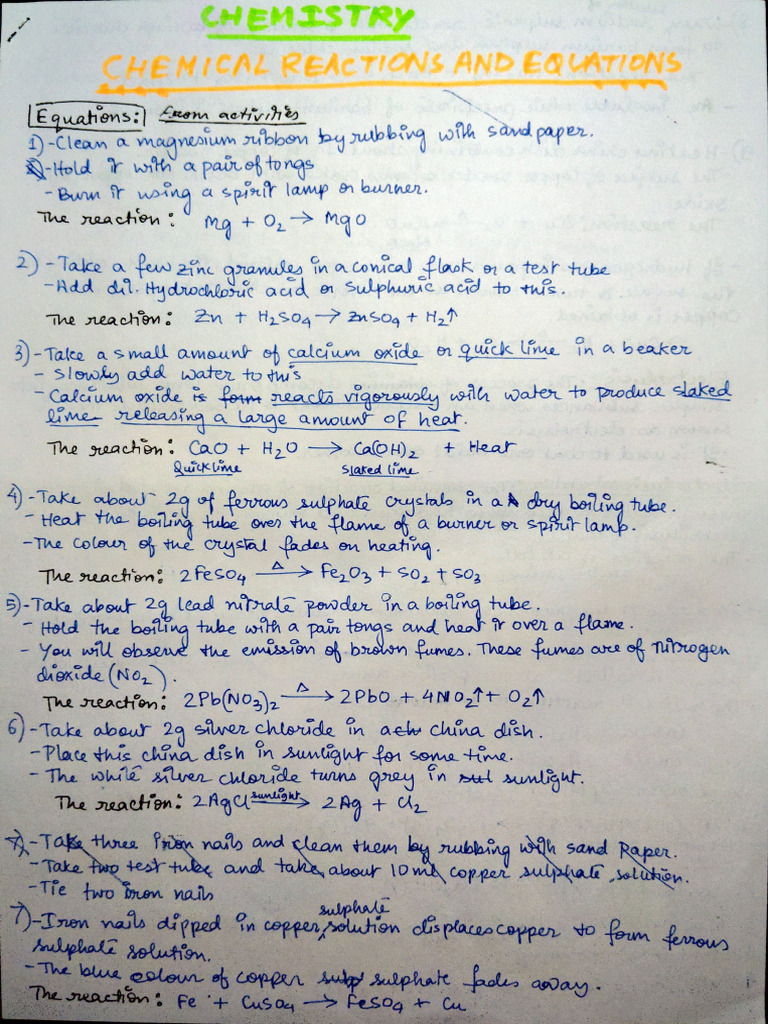 CHEMISTRY
CHEMICAL REACTIONS AND EQUATIONS
Equations: From activities
1) - Clean a magnesium ribbon by rubbing with sandpaper.
- Hold it with a pair of tongs
- Burn it using a spirit lamp or burner.
The reaction: Mg + O2 → MgO
2) - Take a few zinc granules in a conical flask or a test tube
- Add dil. Hydrochloric acid or Sulphuric acid to this.
The reaction: Zn + H2SO4 → ZnSO4 + H2↑
3) - Take a small amount of calcium oxide or quick lime in a beaker
- Slowly add water to this
- Calcium oxide is form reacts vigorously with water to produce slaked
lime releasing a large amount of heat.
The reaction: CaO + H2O → Ca(OH)2 + Heat
Quick lime Slaked lime
4) - Take about 2g of ferrous sulphate crystals in a dry boiling tube.
- Heat the boiling tube over the flame of a burner or spirit lamp.
- The colour of the crystal fades on heating.
The reaction: 2FeSO4 –Δ→ Fe2O3 + SO2 + SO3
5) - Take about 2g lead nitrate powder in a boiling tube.
- Hold the boiling tube with a pair tongs and heat it over a flame.
- You will observe the emission of brown fumes. These fumes are of Nitrogen
dioxide (NO2).
The reaction: 2Pb(NO3)2 –Δ→ 2PbO + 4NO2↑ + O2↑
6) - Take about 2g silver chloride in a china dish.
- Place this china dish in sunlight for some time.
- The white silver chloride turns grey in sunlight.
The reaction: 2AgCl –sunlight→ 2Ag + Cl2
7) - Take three Iron nails and clean them by rubbing with sand Raper.
- Take two test tube and take about 10ml copper sulphate solution.
- Tie two iron nails
7) - Iron nails dipped in copper sulphate solution displaces copper to form ferrous
sulphate solution.
- The blue colour of copper sulphate fades away.
The reaction: Fe + CuSO4 → FeSO4 + Cu